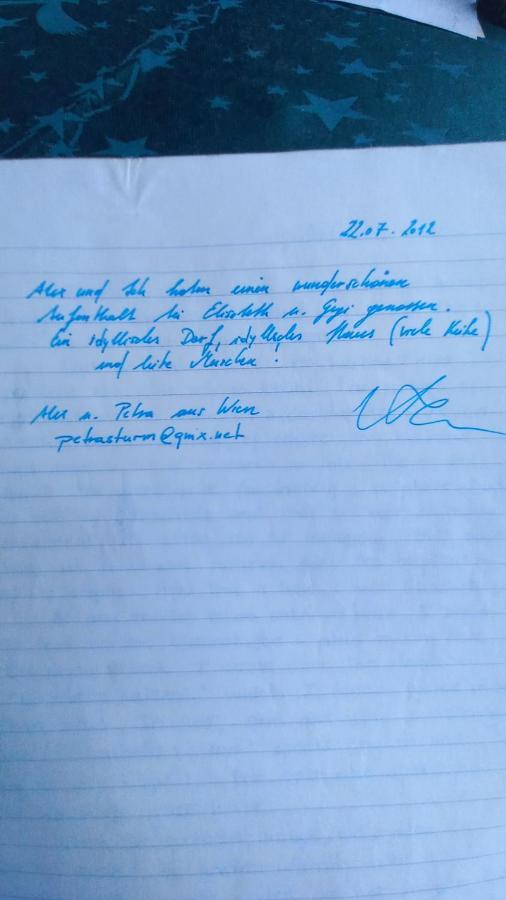 22.07.2012
Alex und Ich haben einen wunderschönen
Aufenthalt bei Elisabeth u. genossen.
Ein idyllisches Dorf, idyllisches Haus (viele Kühe)
und liebe Menschen!
Alex u. Petra aus Wien
petrasturm@gmx.net